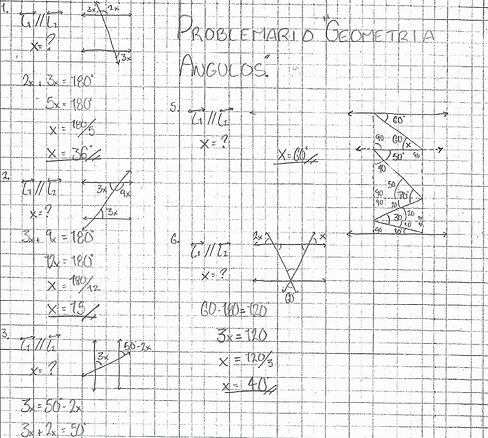 PROBLEMARIO "GEOMETRIA
ANGULOS."
1.
L₁ // L₂
x = ?
3x
2x
3x
2x + 3x = 180°
5x = 180°
x = 180/5
x = 36°
2.
L₁ // L₂
x = ?
3x
9x
3x
3x + 9x = 180°
12x = 180°
x = 180/12
x = 15
3.
L₁ // L₂
x = ?
3x
50-2x
3x = 50-2x
3x + 2x = 50°
5.
L₁ // L₂
x = ?
x = 60°
60°
90
60
x
90
50°
90
50
70°
90
90
20
30
20
90
6.
L₁ // L₂
x = ?
2x
x
60
60 - 180 = 120°
3x = 120
x = 120/3
x = 40°